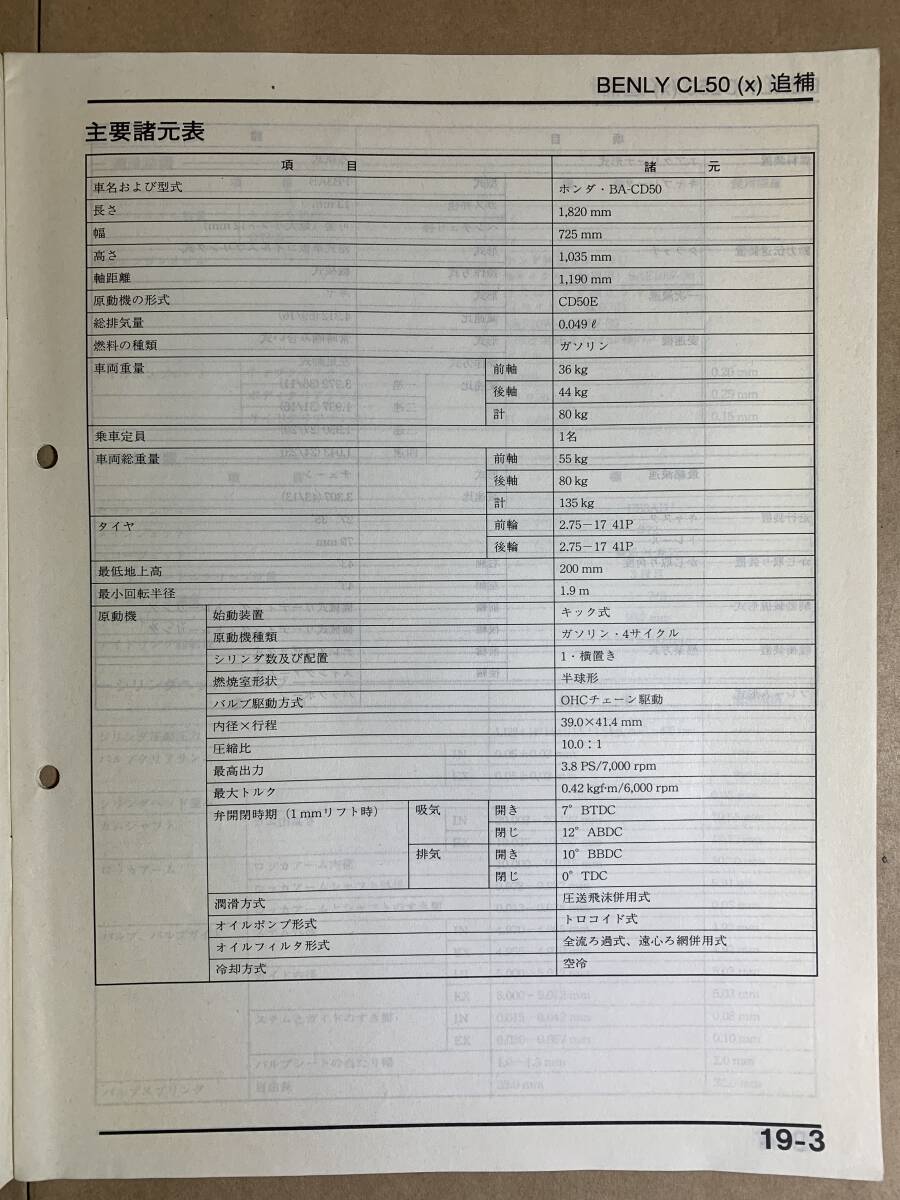 BENLY CL50 (x) 追補
主要諸元表
項 目 諸 元
車名および型式 ホンダ・BA-CD50
長さ 1,820 mm
幅 725 mm
高さ 1,035 mm
軸距離 1,190 mm
原動機の形式 CD50E
総排気量 0.049 ℓ
燃料の種類 ガソリン
車両重量 前軸 36 kg
後軸 44 kg
計 80 kg
乗車定員 1名
車両総重量 前軸 55 kg
後軸 80 kg
計 135 kg
タイヤ 前輪 2.75−17 41P
後輪 2.75−17 41P
最低地上高 200 mm
最小回転半径 1.9 m
原動機 始動装置 キック式
原動機種類 ガソリン・4サイクル
シリンダ数及び配置 1・横置き
燃焼室形状 半球形
バルブ駆動方式 OHCチェーン駆動
内径×行程 39.0×41.4 mm
圧縮比 10.0：1
最高出力 3.8 PS/7,000 rpm
最大トルク 0.42 kgf·m/6,000 rpm
弁開閉時期（1 mmリフト時） 吸気 開き 7° BTDC
閉じ 12° ABDC
排気 開き 10° BBDC
閉じ 0° TDC
潤滑方式 圧送飛沫併用式
オイルポンプ形式 トロコイド式
オイルフィルタ形式 全流ろ過式、遠心ろ網併用式
冷却方式 空冷
19-3